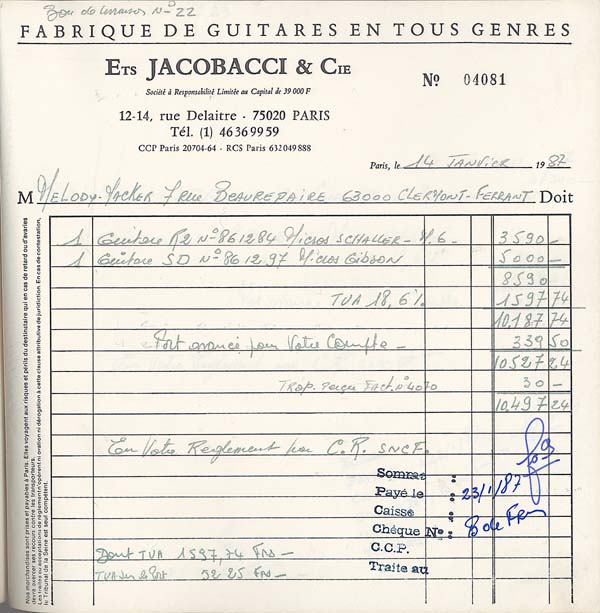 Bon de livraison N° 22
FABRIQUE DE GUITARES EN TOUS GENRES
Ets JACOBACCI & Cie
Société à Responsabilité Limitée au Capital de 39 000 F
N° 04081
12-14, rue Delaitre - 75020 PARIS
Tél. (1) 46 36 99 59
CCP Paris 20704-64 - RCS Paris 632 049 888
Paris, le 14 JANVIER 1987
M MELODY-MACKER 7 rue BEAUREPAIRE 63000 CLERMONT-FERRANT Doit
1 Guitare R2 N° 861284 Micros SCHALLER - M.6- 3590 -
1 Guitare SD N° 861297 Micros Gibson 5000 -
8590
TVA 18,6% 1597 74
10.187 74
Port avancé pour Votre Compte - 339 50
10.527 24
Trop perçu Fact. N° 4070 30 -
10.497 24
En Votre Reglement par C.R. SNCF.
Somme :
Payé le : 23/1/87
Caisse :
Chèque No : B de Fran
C.C.P. :
Traite au :
Dont TVA 1597,74 Frs -
TVA sur le Port 52 25 Frs -
Nos marchandises sont prises et payables à Paris. Elles voyagent aux risques et périls du destinataire qui en cas de retard ou d'avaries
devra exercer ses recours contre les transporteurs.
Les traites ou acceptations de règlement n'opèrent ni novation ni dérogation à cette clause attributive de juridiction. En cas de contestation,
le Tribunal de la Seine est seul compétent.